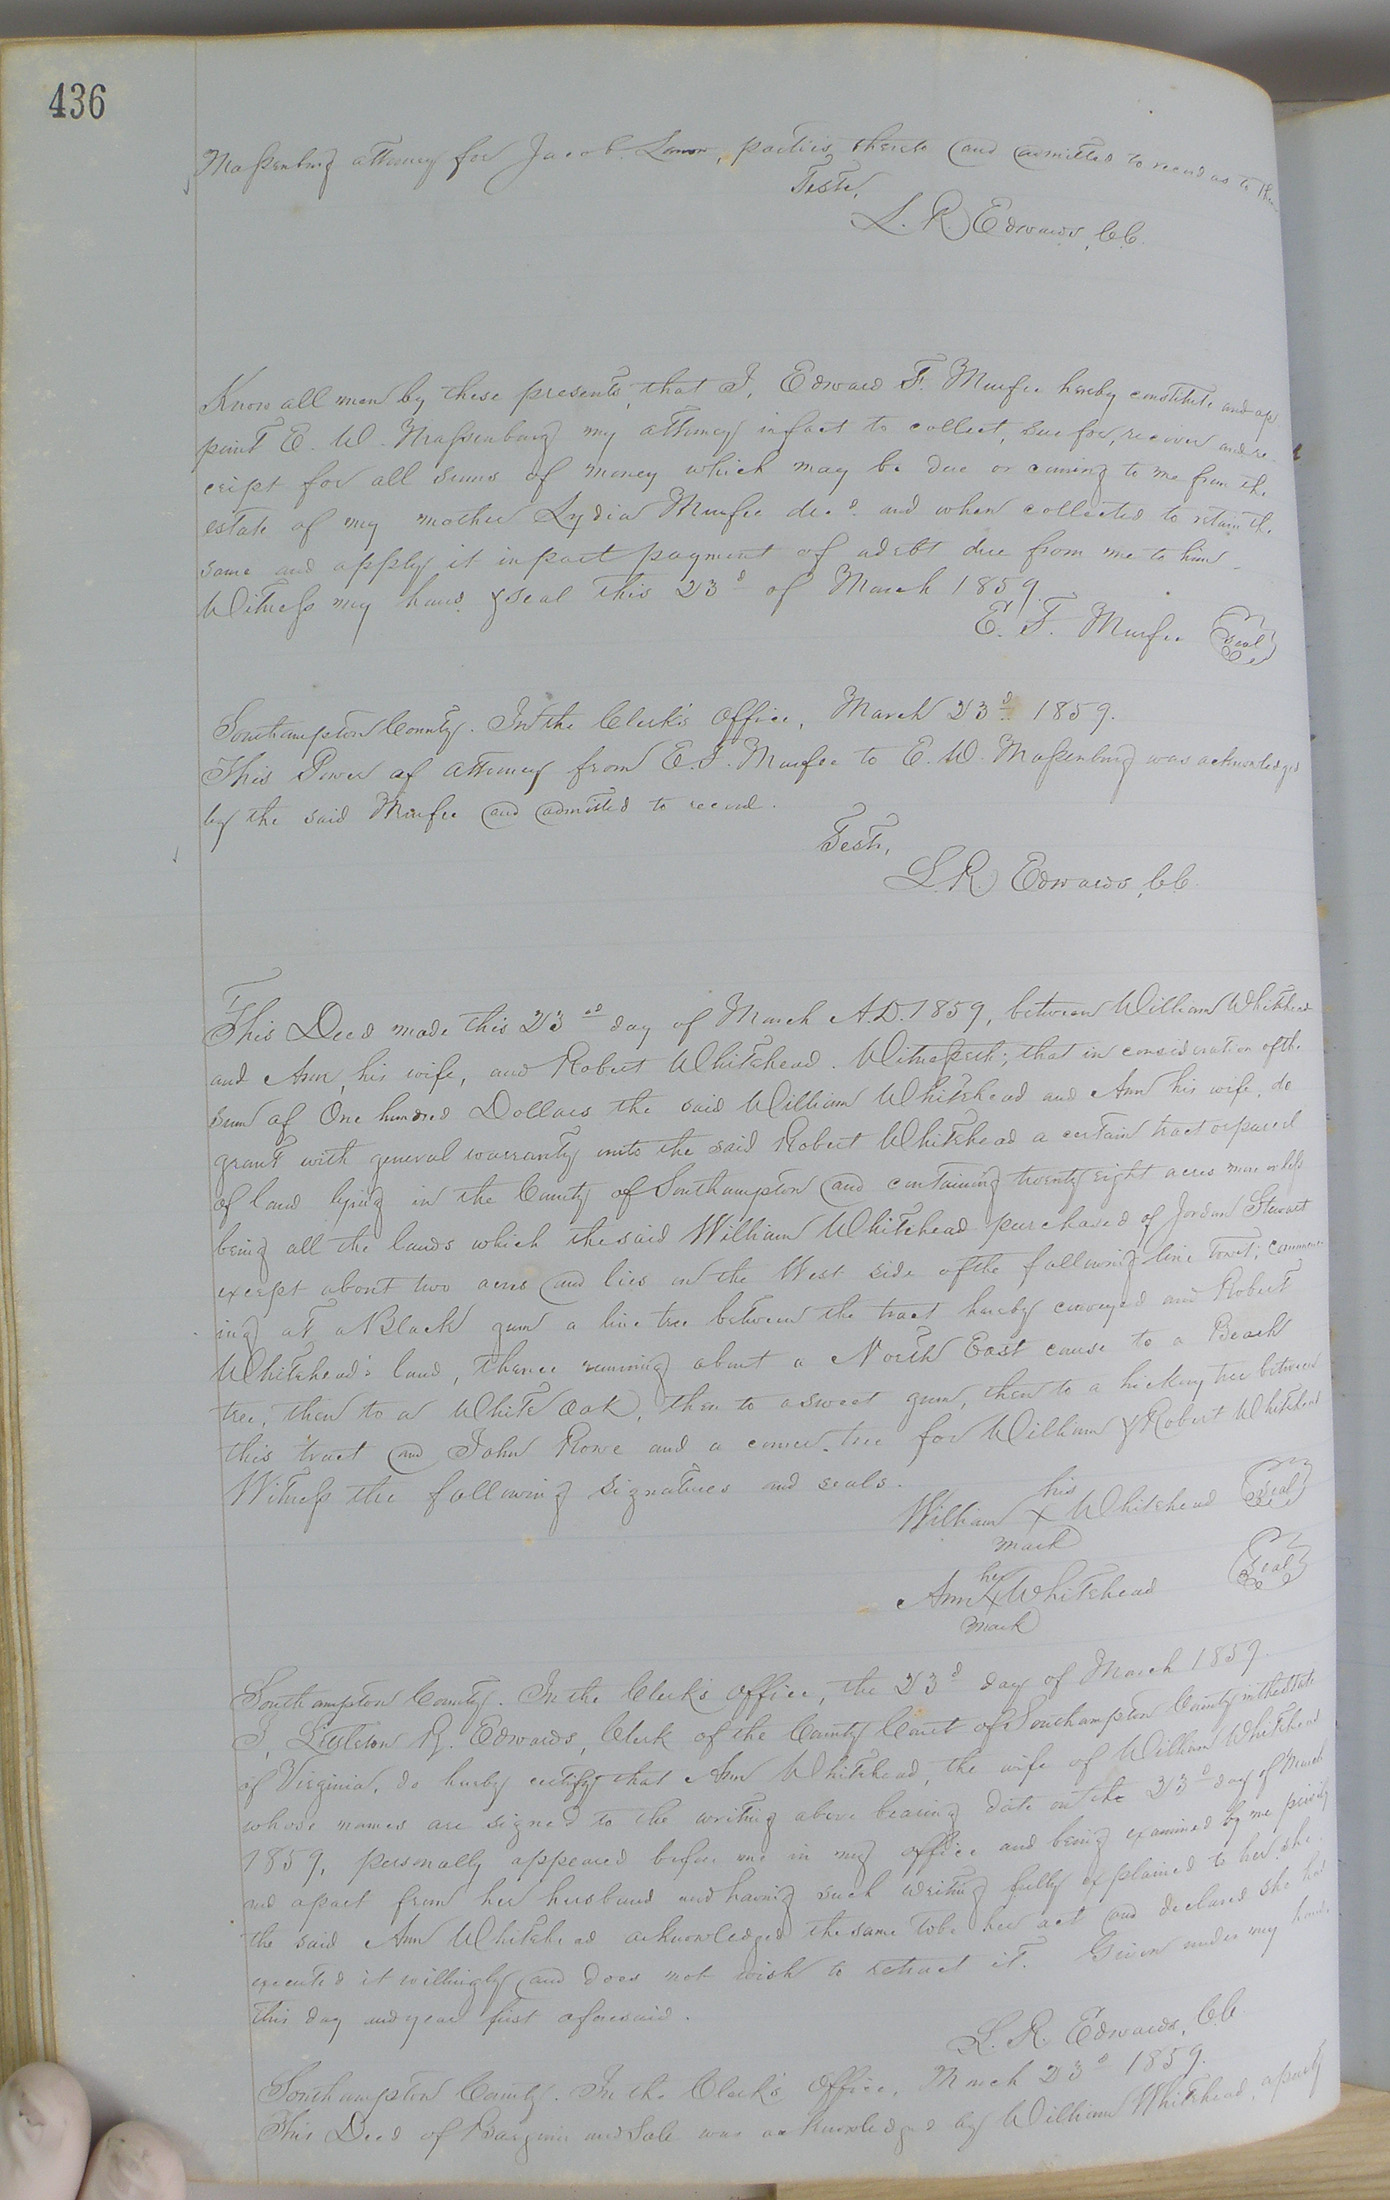 436
Massenburg attorney for Jacob , parties thereto and admitted to record as to them
Teste,
L. R. Edwards, C.C.
Know all men by these presents, that I, Edward F. Murfee hereby constitute and ap
point E. W. Massenburg my attorney in fact to collect, sue for, receive and re-
ceipt for all sums of money which may be due or coming to me from the
estate of my mother Lydia Murfee decd. and when collected to retain the
same and apply it in part payment of a debt due from me to him -
Witness my hand & seal this 23d of March 1859.
E. F. Murfee (Seal)
Southampton County. In the Clerk's Office, March 23d 1859.
This Power of attorney from E. F. Murfee to E. W. Massenburg was acknowledged
by the said Murfee and admitted to record.
Teste,
L. R. Edwards, C.C.
This Deed made this 23rd day of March A.D. 1859, between William Whitehead
and Ann, his wife, and Robert Whitehead. Witnesseth; that in consideration of the
sum of One hundred Dollars the said William Whitehead and Ann his wife, do
grant with general warranty unto the said Robert Whitehead a certain tract or parcel
of land lying in the County of Southampton and containing twenty eight acres more or less
being all the lands which the said William Whitehead purchased of Jordan Stewart
except about two acres and lies on the West side of the following line towit; commenc-
ing at a Black gum a line tree between the tract hereby conveyed and Robert
Whitehead's land, thence running about a North East course to a Beach
tree, then to a White Oak, then to a sweet gum, then to a hickory tree between
this tract and John Rowe and a corner tree for William & Robert Whitehead
Witness the following signatures and seals.
his
William X Whitehead (Seal)
mark
her
Ann X Whitehead (Seal)
mark
Southampton County. In the Clerk's Office, the 23d day of March 1859.
I, Littleton R. Edwards, Clerk of the County Court of Southampton County in the State
of Virginia, do hereby certify that Ann Whitehead, the wife of William Whitehead
whose names are signed to the writing above bearing date on the 23d day of March
1859, personally appeared before me in my office and being examined by me privily
and apart from her husband and having such writing fully explained to her she
the said Ann Whitehead acknowledged the same to be her act and declared she had
executed it willingly and does not wish to retract it. Given under my hand
this day and year first aforesaid.
L. R. Edwards, C.C.
Southampton County. In the Clerk's Office, March 23d 1859.
This Deed of Bargain and Sale was acknowledged by William Whitehead, a party